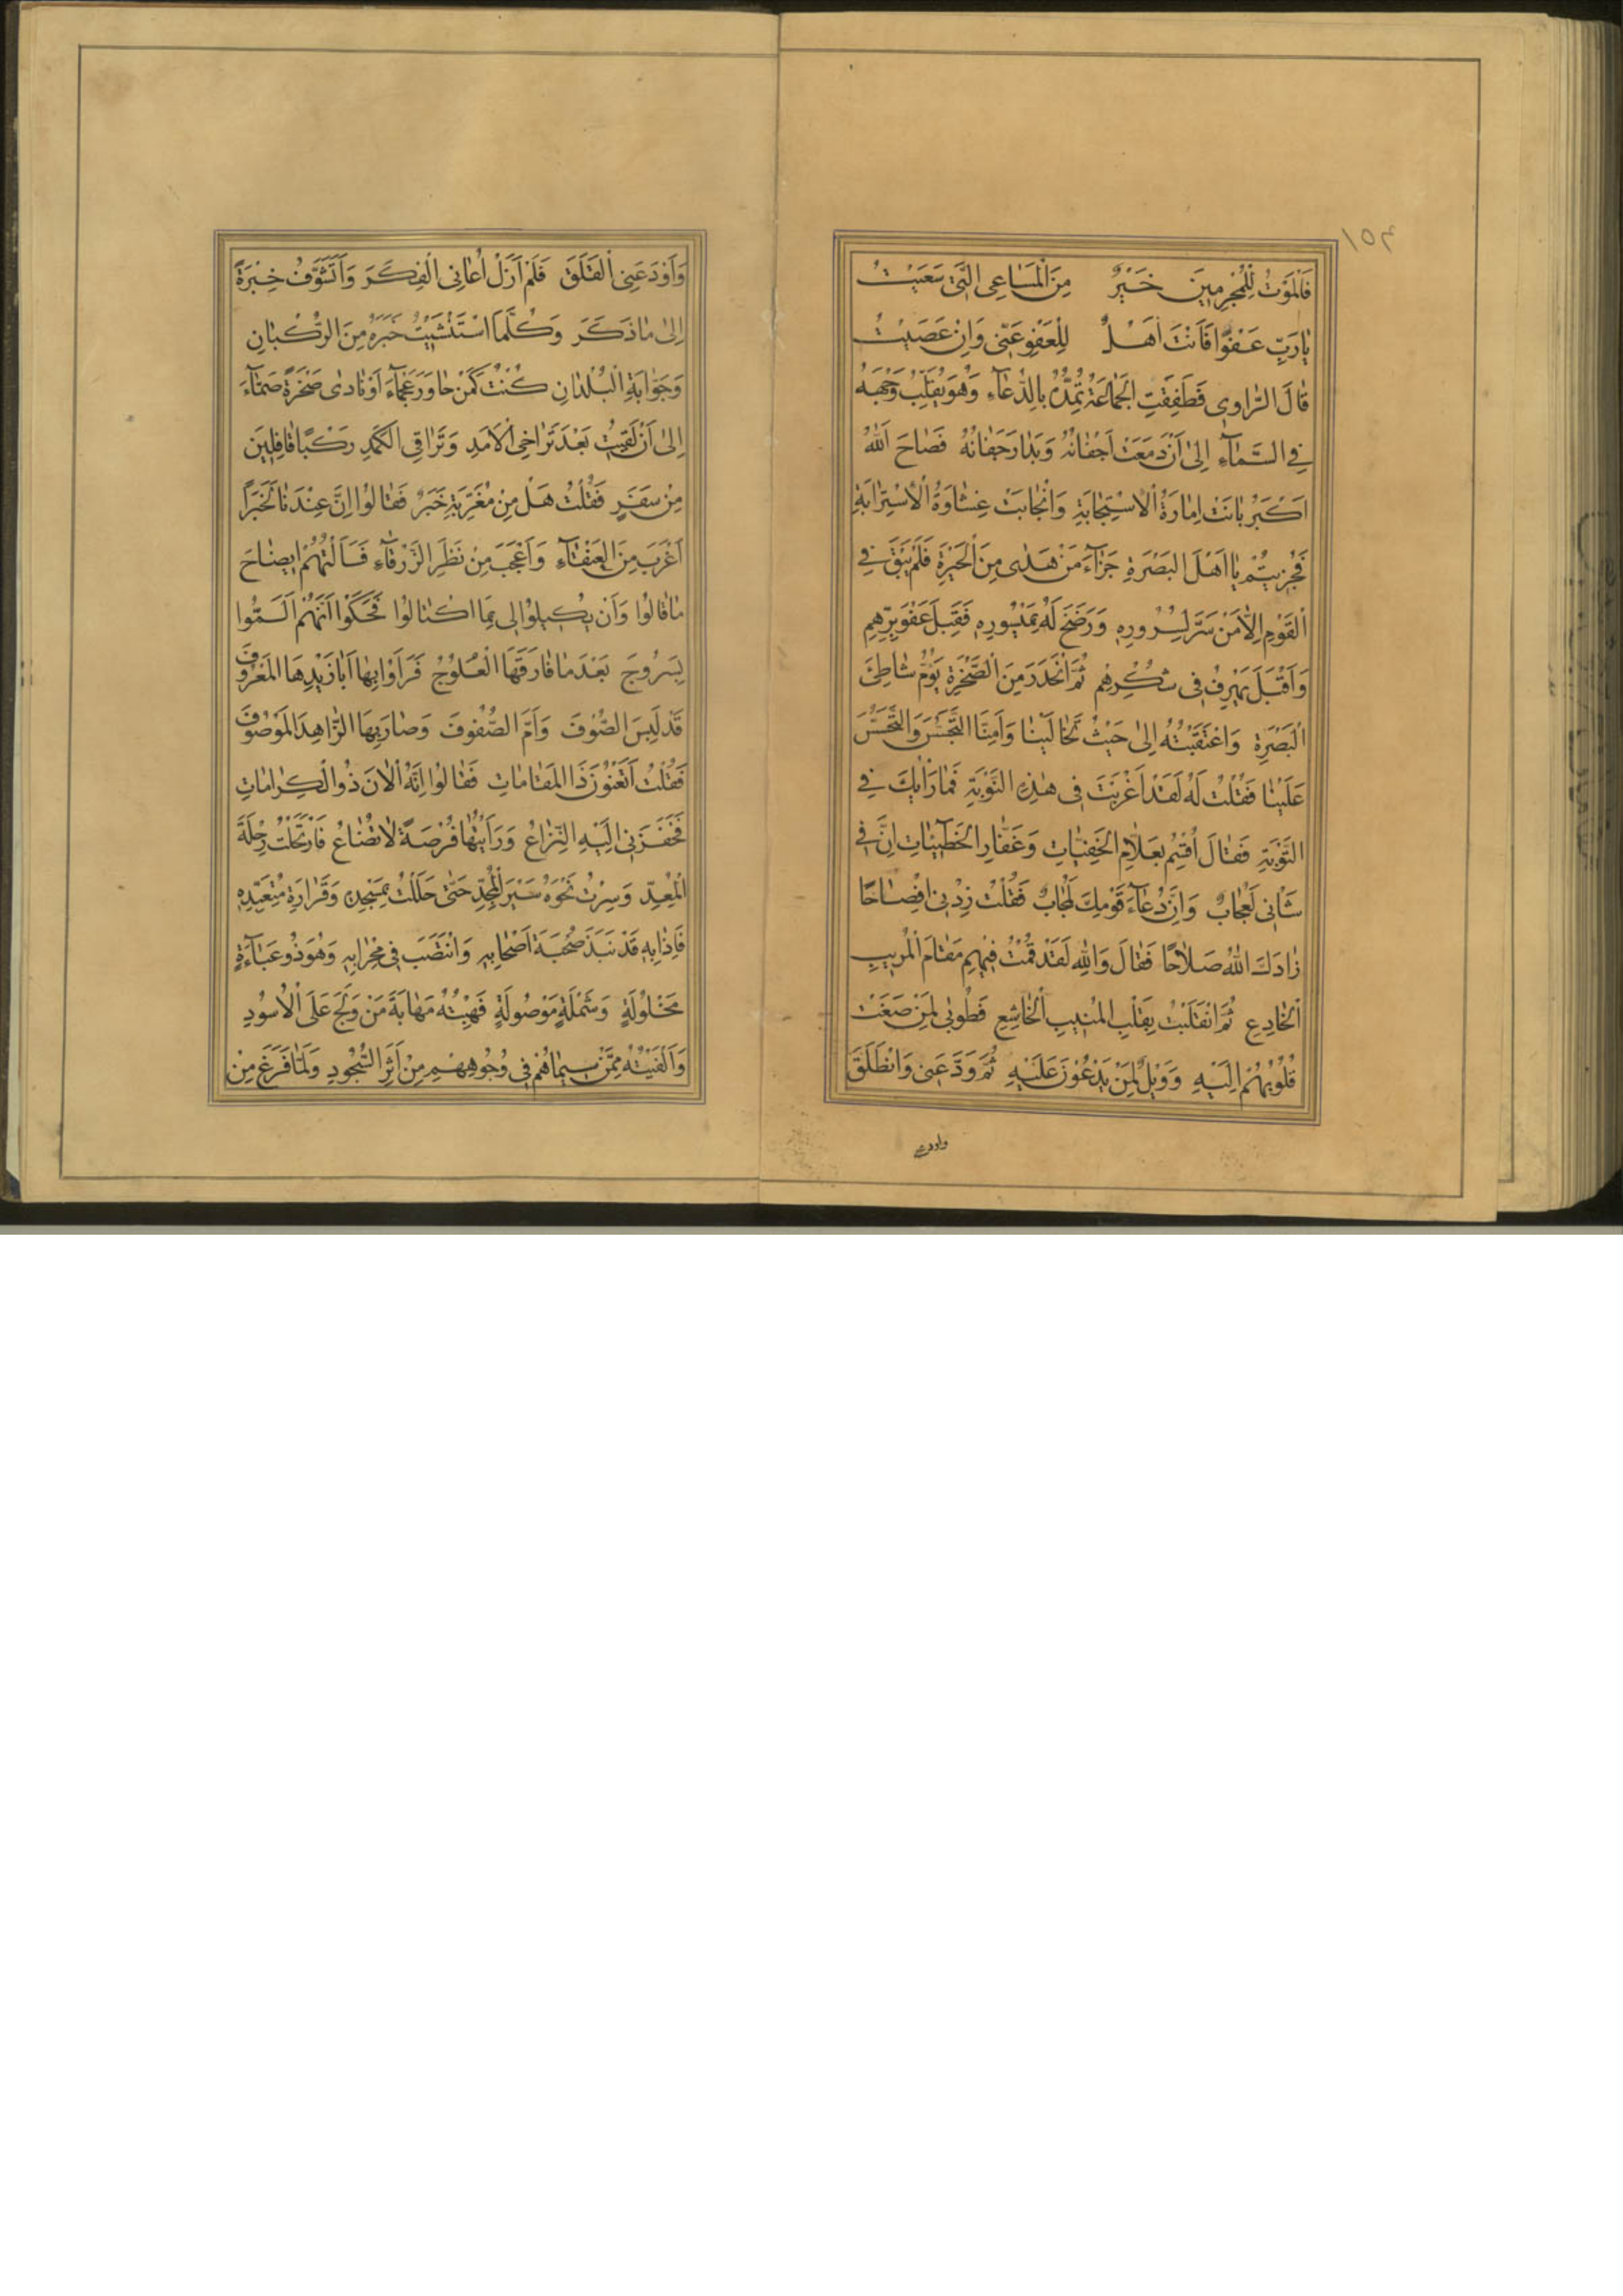 ١٥٣
فَالْمَوْتُ لِلْمُجْرِمِينَ خَيْرٌ مِنَ الْمَسَاعِي الَّتِي سَعَيْتُ
يَا رَبِّ عَفْوًا فَاَنْتَ اَهْلٌ لِلْعَفْوِ عَنِّي وَاِنْ عَصَيْتُ
قَالَ الرَّاوِي فَطَفِقَتِ الْجَمَاعَةُ تُمِدُّهُ بِالدُّعَآءِ وَهُوَ يُقَلِّبُ وَجْهَهُ
فِي السَّمَآءِ اِلَى اَنْ دَمَعَتْ اَجْفَانُهُ وَبَدَا رَجَفَانُهُ فَصَاحَ اَللّٰهُ
اَكْبَرُ بَانَتْ اِمَارَةُ الْاِسْتِجَابَةِ وَانْجَابَتْ غِشَاوَةُ الْاِسْتِرَابَةِ
فَجُزِيتُمْ يَا اَهْلَ الْبَصْرَةِ جَزَآءَ مَنْ هَدٰى مِنَ الْحَيْرَةِ فَلَمْ يَبْقَ فِي
الْقَوْمِ اِلَّا مَنْ سَرَّ لِسُرُورِهِ وَرَضَخَ لَهُ بِمَيْسُورِهِ فَقَبِلَ عَفْوَ بِرِّهِمِ
وَاَقْبَلَ يَهْرِفُ فِي شُكْرِهِمْ ثُمَّ انْحَدَرَ مِنَ الصَّخْرَةِ يَؤُمُّ شَاطِئَ
الْبَصْرَةِ وَاعْتَقَبْتُهُ اِلَى حَيْثُ تَخَالَيْنَا وَاَمِنَّا التَّجَسُّسَ وَالتَّحَسُّسَ
عَلَيْنَا فَقُلْتُ لَهُ لَقَدْ اَغْرَبْتَ فِي هٰذِهِ النَّوْبَةِ فَمَا رَأْيُكَ فِي
التَّوْبَةِ فَقَالَ اُقْسِمُ بِعَلَّامِ الْخَفِيَّاتِ وَغَفَّارِ الْخَطِيئَاتِ اِنَّ فِي
شَانِي لَعُجَابٌ وَاِنَّ دُعَآءَ قَوْمِكَ لَمُجَابٌ فَقُلْتُ زِدْنِي اِفْصَاحًا
زَادَكَ اللّٰهُ صَلَاحًا فَقَالَ وَاللّٰهِ لَقَدْ قُمْتُ فِيهِمِ مَقَامَ الْمُرِيبِ
الْخَادِعِ ثُمَّ انْقَلَبْتُ بِقَلْبِ الْمُنِيبِ الْخَاشِعِ فَطُوبَى لِمَنْ صَغَتْ
قُلُوبُهُمْ اِلَيْهِ وَوَيْلٌ لِمَنْ يَدْعُونَ عَلَيْهِ ثُمَّ وَدَّعَنِي وَانْطَلَقَ
واودعنى
وَاَوْدَعَنِي الْقَلَقَ فَلَمْ اَزَلْ اُعَانِي الْفِكَرَ وَاَتَشَوَّفُ خِبْرَةً
اِلٰى مَا ذَكَرَ وَكُلَّمَا اسْتَنْشَيْتُ خَبَرَهُ مِنَ الرُّكْبَانِ
وَجَوَّابَةِ الْبُلْدَانِ كُنْتُ كَمَنْ حَاوَرَ عَجْمَآءَ اَوْ نَادَى صَخْرَةً صَمَّآءَ
اِلٰى اَنْ لَقِيْتُ بَعْدَ تَرَاخِي الْاَمَدِ وَتَرَاقِي الْكَمَدِ رَكْبًا قَافِلِينَ
مِنْ سَفَرٍ فَقُلْتُ هَلْ مِنْ مُغَرِّبَةِ خَبَرٍ فَقَالُوا اِنَّ عِنْدَنَا لَخَبَرًا
اَغْرَبَ مِنَ الْعَنْقَآءِ وَاَعْجَبَ مِنْ نَظَرِ الزَّرْقَآءِ فَسَاَلْتُهُمْ اِيضَاحَ
مَا قَالُوا وَاَنْ يَكِيلُوا لِي مِمَّا اكْتَالُوا فَحَكَوْا اَنَّهُمْ اَلَمُّوا
بِسَرُوجَ بَعْدَ مَا فَارَقَهَا الْعُلُوجُ فَرَاَوْا بِهَا اَبَا زَيْدِهَا الْمَعْرُوفَ
قَدْ لَبِسَ الصُّوفَ وَاَمَّ الصُّفُوفَ وَصَارَ بِهَا الزَّاهِدَ الْمَوْصُوفَ
فَقُلْتُ اَتَعْنُونَ ذَا الْمَقَامَاتِ فَقَالُوا اِنَّهُ الْاٰنَ ذُو الْكِرَامَاتِ
فَحَفَزَنِي اِلَيْهِ النِّزَاعُ وَرَاَيْتُهَا فُرْصَةً لَا تُضَاعُ فَارْتَحَلْتُ رِحْلَةَ
الْمُعِدِّ وَسِرْتُ نَحْوَهُ سَيْرَ الْمُجِدِّ حَتّٰى حَلَلْتُ بِمَسْجِدِهِ وَقَرَارَةِ مُتَعَبَّدِهِ
فَاِذَا بِهِ قَدْ نَبَذَ صُحْبَةَ اَصْحَابِهِ وَانْتَصَبَ فِي مِحْرَابِهِ وَهُوَ ذُو عَبَآءَةٍ
مَخْلُولَةٍ وَشَمْلَةٍ مَوْصُولَةٍ فَهِبْتُهُ مَهَابَةَ مَنْ وَلَجَ عَلَى الْاُسُودِ
وَاَلْفَيْتُهُ مِمَّنْ سِيمَاهُمْ فِي وُجُوهِهِمِ مِنْ اَثَرِ السُّجُودِ وَلَمَّا فَرَغَ مِنْ